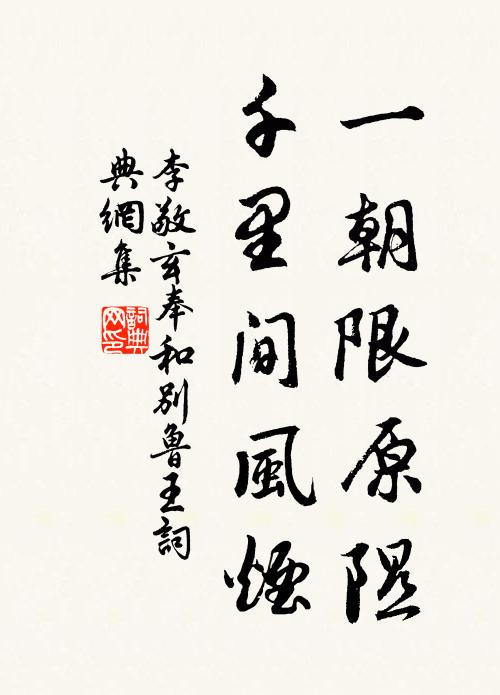 一朝限原隰
千里間風煙
李敬玄奉和別魯王詞
典網集
詞典
网印